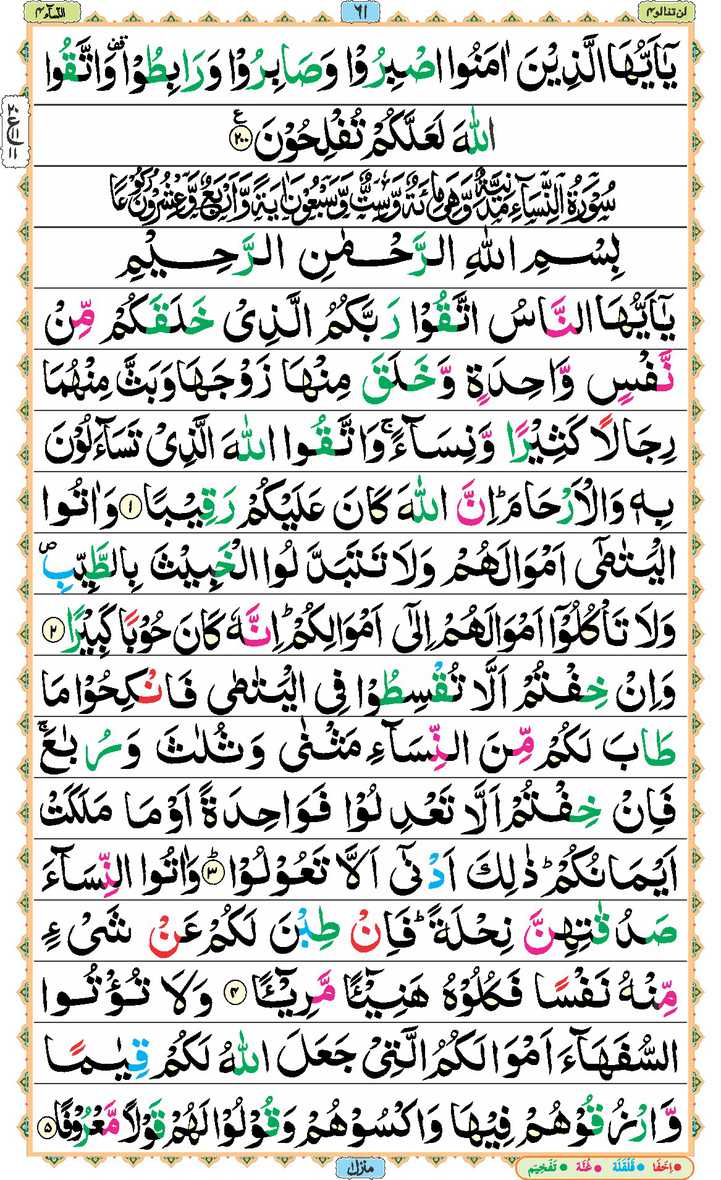 لن تنالوا ٤ ٦١ النسآء ٤
يٰۤاَيُّهَا الَّذِيْنَ اٰمَنُوا اصْبِرُوْا وَصَابِرُوْا وَرَابِطُوْا ۟ وَاتَّقُوا
اللّٰهَ لَعَلَّكُمْ تُفْلِحُوْنَ ۲۰۰ ع
سُوْرَةُ النِّسَآءِ مَدَنِيَّةٌ وَّهِيَ مِائَةٌ وَّسِتٌّ وَّسَبْعُوْنَ اٰيَةً وَّاَرْبَعٌ وَّعِشْرُوْنَ رُكُوْعًا
بِسْمِ اللّٰهِ الرَّحْمٰنِ الرَّحِيْمِ
يٰۤاَيُّهَا النَّاسُ اتَّقُوْا رَبَّكُمُ الَّذِىْ خَلَقَكُمْ مِّنْ
نَّفْسٍ وَّاحِدَةٍ وَّخَلَقَ مِنْهَا زَوْجَهَا وَبَثَّ مِنْهُمَا
رِجَالًا كَثِيْرًا وَّنِسَآءً ۚ وَاتَّقُوا اللّٰهَ الَّذِىْ تَسَآءَلُوْنَ
بِهٖ وَالْاَرْحَامَ ؕ اِنَّ اللّٰهَ كَانَ عَلَيْكُمْ رَقِيْبًا ۱ وَاٰتُوا
الْيَتٰمٰٓى اَمْوَالَهُمْ وَلَا تَتَبَدَّلُوا الْخَبِيْثَ بِالطَّيِّبِ ۪
وَلَا تَاْكُلُوْۤا اَمْوَالَهُمْ اِلٰٓى اَمْوَالِكُمْ ؕ اِنَّهٗ كَانَ حُوْبًا كَبِيْرًا ۲
وَاِنْ خِفْتُمْ اَلَّا تُقْسِطُوْا فِى الْيَتٰمٰى فَانْكِحُوْا مَا
طَابَ لَكُمْ مِّنَ النِّسَآءِ مَثْنٰى وَثُلٰثَ وَرُبٰعَ ۚ
فَاِنْ خِفْتُمْ اَلَّا تَعْدِلُوْا فَوَاحِدَةً اَوْ مَا مَلَكَتْ
اَيْمَانُكُمْ ؕ ذٰلِكَ اَدْنٰٓى اَلَّا تَعُوْلُوْا ؕ ۳ وَاٰتُوا النِّسَآءَ
صَدُقٰتِهِنَّ نِحْلَةً ؕ فَاِنْ طِبْنَ لَكُمْ عَنْ شَىْءٍ
مِّنْهُ نَفْسًا فَكُلُوْهُ هَنِيْٓئًا مَّرِيْٓئًا ۴ وَلَا تُؤْتُوا
السُّفَهَآءَ اَمْوَالَكُمُ الَّتِىْ جَعَلَ اللّٰهُ لَكُمْ قِيٰمًا
وَّارْزُقُوْهُمْ فِيْهَا وَاكْسُوْهُمْ وَقُوْلُوْا لَهُمْ قَوْلًا مَّعْرُوْفًا ۵
منزل ۱
اِخْفَا قَلْقَلَة غُنَّة تَفْخِيْم